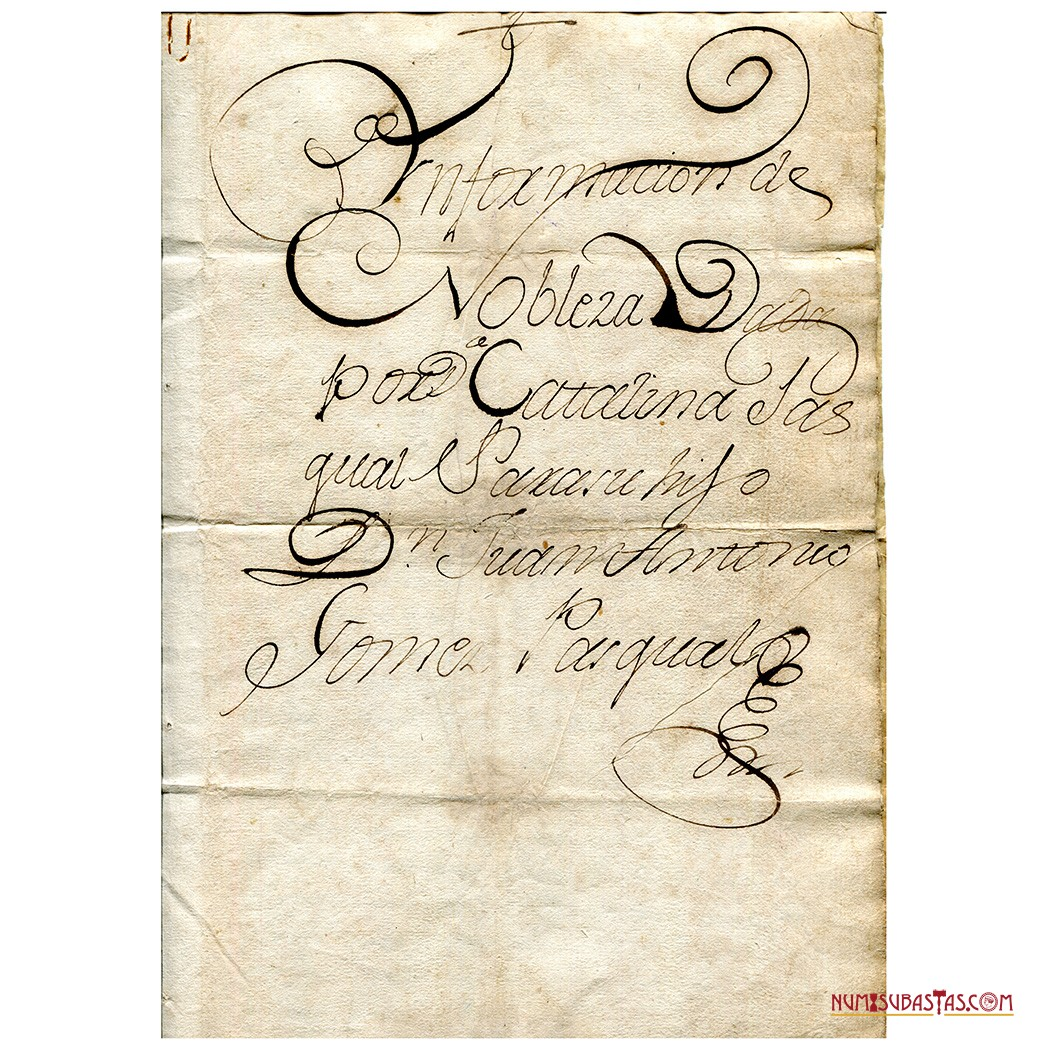 Ynformacion de
Nobleza Dada
por Dª Catalina Pas
qual Para su hijo
Dn. Juan Antonio
Gomez Pasqual
NUMISUBASTAS.COM